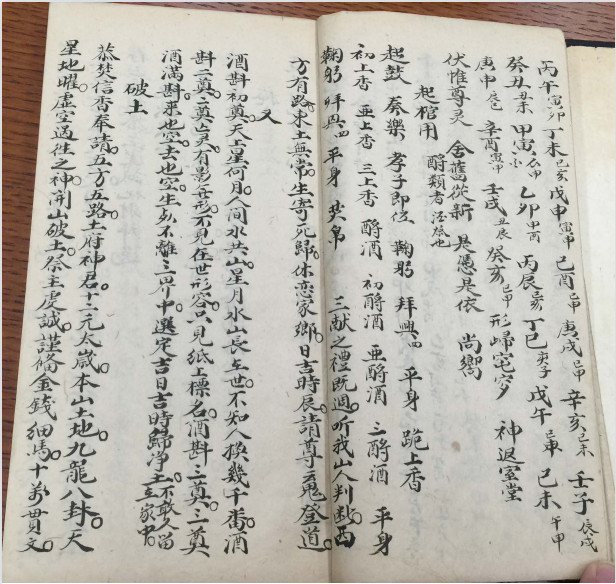 丙午寅卯 丁未己亥 戊申寅申 己酉己申 庚戌己申 辛亥己未 壬子辰戌
癸丑丑未 甲寅 乙卯申酉 丙辰亥 丁巳 戊午 己未午申
庚申 辛酉寅申 壬戌丑辰 癸亥己申 形歸窀穸 神返室堂
伏惟尊灵 舍舊從新 是憑是依 尚嚮
起棺用 酹類者 也
起鼓 奏樂 孝子即位 鞠躬 拜興四 平身 跪上香
初上香 亞上香 三上香 酹酒 初酹酒 亞酹酒 三酹酒 平身
鞠躬 拜興四 平身 焚帛 三献之禮既週 听我山人判断 西
方有路 東土無常 生寄死歸 休恋家鄉 日吉時辰 請尊灵登道
又
酒斟初奠 天上星何月 人間水共山 星月水山長在世 不知人換幾千番 酒
斟二奠 奠灵有影无形 不見在世形容 只見紙上標名 酒斟三奠 三奠
酒滿斟 来也空 去也空 生死不離三界中 選定吉日吉時歸净土 不敢久留立家中
破土
恭焚信香奉請 五方五路土府神君 十二元太歲 本山土地 九龍八卦 天
星地曜 虚空過往之神 開山破土 祭主虔誠 謹俻金錢 细馬十萬貫文